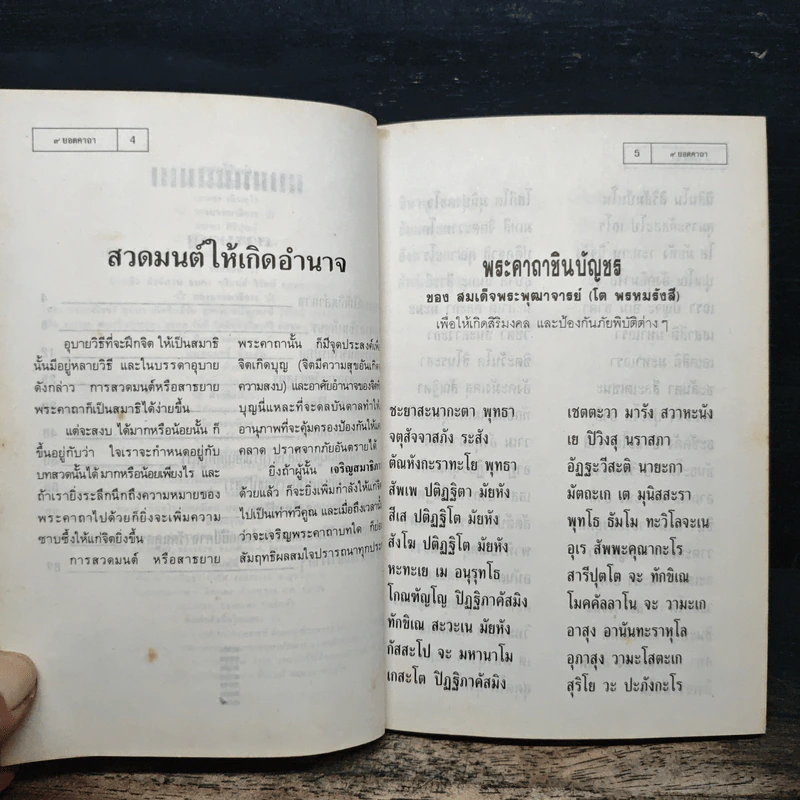 ๙ ยอดคาถา 4
สวดมนต์ให้เกิดอำนาจ
อุบายวิธีที่จะฝึกจิต ให้เป็นสมาธิ
นั้นมีอยู่หลายวิธี และในบรรดาอุบาย
ดังกล่าว การสวดมนต์หรือสาธยาย
พระคาถาก็เป็นสมาธิได้ง่ายขึ้น
แต่จะสงบ ได้มากหรือน้อยนั้น ก็
ขึ้นอยู่กับว่า ใจเราจะกำหนดอยู่กับ
บทสวดนั้นได้มากหรือน้อยเพียงไร และ
ถ้าเรายิ่งระลึกนึกถึงความหมายของ
พระคาถาไปด้วยก็ยิ่งจะเพิ่มความ
ซาบซึ้งให้แก่จิตยิ่งขึ้น
การสวดมนต์ หรือสาธยาย
พระคาถานั้น ก็มีจุดประสงค์
จิตเกิดบุญ (จิตมีความสุขอันเกิด
ความสงบ) และอาศัยอำนาจของจิต
บุญนี่แหละที่จะดลบันดาลทำให้
อานุภาพที่จะคุ้มครองป้องกันให้
คลาด ปราศจากภัยอันตรายได้
ยิ่งถ้าผู้นั้น เจริญสมาธิ
ด้วยแล้ว ก็จะยิ่งเพิ่มกำลังให้แก่
ไปเป็นเท่าทวีคูณ และเมื่อถึงเวลา
ว่าจะเจริญพระคาถาบทใด ก็
สัมฤทธิผลสมใจปรารถนาทุก
5 ๙ ยอดคาถา
พระคาถาชินบัญชร
ของ สมเด็จพระพุฒาจารย์ (โต พรหมรังสี)
เพื่อให้เกิดสิริมงคล และป้องกันภัยพิบัติต่าง ๆ
ชะยาสะนากะตา พุทธา เชตตะวา มารัง สวาหะนัง
จตุสัจจาสภัง ระสัง เย ปิวิงสุ นราสภา
ตัณหังกะราทะโย พุทธา อัฏฐะวีสะติ นายะกา
สัพเพ ปติฏฐิตา มัยหัง มัตถะเก เต มุนิสสะรา
สีเส ปติฏฐิโต มัยหัง พุทโธ ธัมโม ทะวิโลจะเน
สังโฆ ปติฏฐิโต มัยหัง อุเร สัพพะคุณากะโร
หะทะเย เม อนุรุทโธ สารีปุตโต จะ ทักขิเณ
โกณฑัญโญ ปิฏฐิภาคัสมิง โมคคัลลาโน จะ วามะเก
ทักขิเณ สะวะเน มัยหัง อาสุง อานันทะราหุโล
กัสสะโป จะ มหานาโม อุภาสุง วามะโสตะเก
เกสะโต ปิฏฐิภาคัสมิง สุริโย วะ ปะภังกะโร